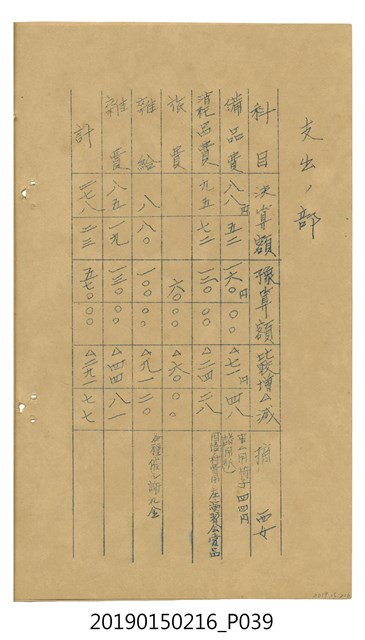 支出ノ部
科目 決算額 豫算額 比較増△減 摘要
備品費 八八円五二 一六〇円〇〇 △七一円四八
消耗品費 九五七二 一二〇〇〇 △二四二八
旅費 六〇〇〇 △六〇〇〇
雜給 八八〇 一〇〇〇〇 △九一二〇 各種催シ謝礼金
雜費 八五一九 一三〇〇〇 △四四八一
計 二七八二三 五七〇〇〇 △二九一七七
20190150216_P039